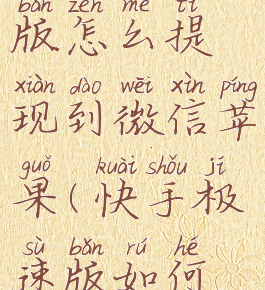 bǎn zěn me tí
版怎么提
xiàn dào wēi xìn píng
现到微信苹
guǒ kuài shǒu jí
果(快手极
sù bǎn rú hé
速版如何